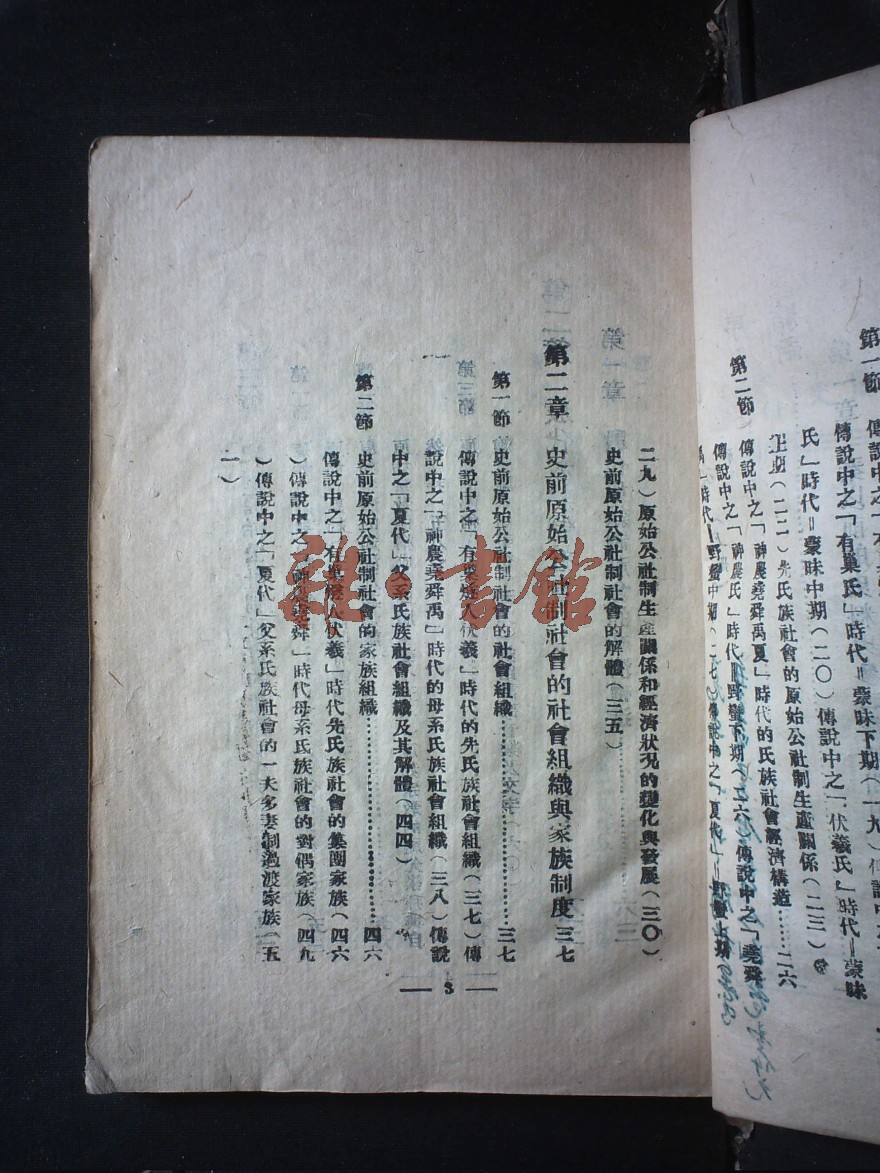 第一節
傳說中之「有巢氏」時代＝蒙昧下期（一九）
氏」時代＝蒙昧中期（二〇）傳說中之「伏羲氏」時代＝蒙昧
上期（二二）先氏族社會的原始公社制生產關係（二三）
第二節
傳說中之「神農堯舜禹夏」時代的氏族社會經濟構造……二六
傳說中之「神農氏」時代＝野蠻下期（二六）傳說中之「堯舜
禹」時代＝野蠻中期（二七）傳說中之「夏代」＝野蠻上期（
二九）原始公社制生產關係和經濟狀況的變化與發展（三〇）
史前原始公社制社會的解體（三五）
第二章 史前原始公社制社會的社會組織與家族制度 三七
第一節 史前原始公社制社會的社會組織……三七
傳說中之「有巢燧人伏羲」時代的先氏族社會組織（三七）傳
說中之「神農堯舜禹」時代的母系氏族社會組織（三八）傳說
中之「夏代」父系氏族社會組織及其解體（四四）
第二節 史前原始公社制社會的家族組織……四六
傳說中之「有巢燧人伏羲」時代先氏族社會的集團家族（四六
）傳說中之「神農堯舜」時代母系氏族社會的對偶家族（四九
）傳說中之「夏代」父系氏族社會的一夫多妻制過渡家族（五
一）
— 3 —
雜·書館